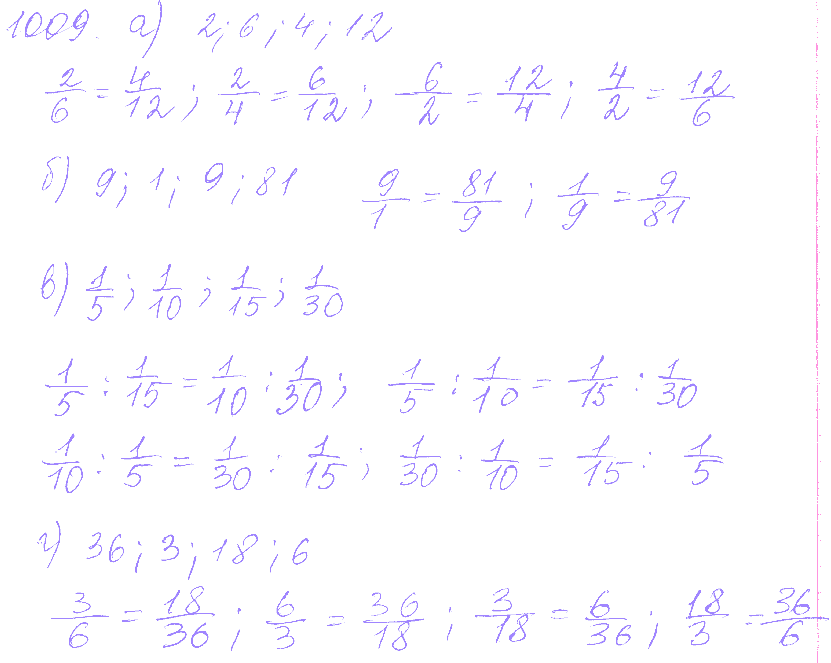 1009. а) 2; 6; 4; 12
2/6 = 4/12; 2/4 = 6/12; 6/2 = 12/4; 4/2 = 12/6
б) 9; 1; 9; 81 9/1 = 81/9; 1/9 = 9/81
в) 1/5; 1/10; 1/15; 1/30
1/5 : 1/15 = 1/10 : 1/30; 1/5 : 1/10 = 1/15 : 1/30
1/10 : 1/5 = 1/30 : 1/15; 1/30 : 1/10 = 1/15 : 1/5
г) 36; 3; 18; 6
3/6 = 18/36; 6/3 = 36/18; 3/18 = 6/36; 18/3 = 36/6